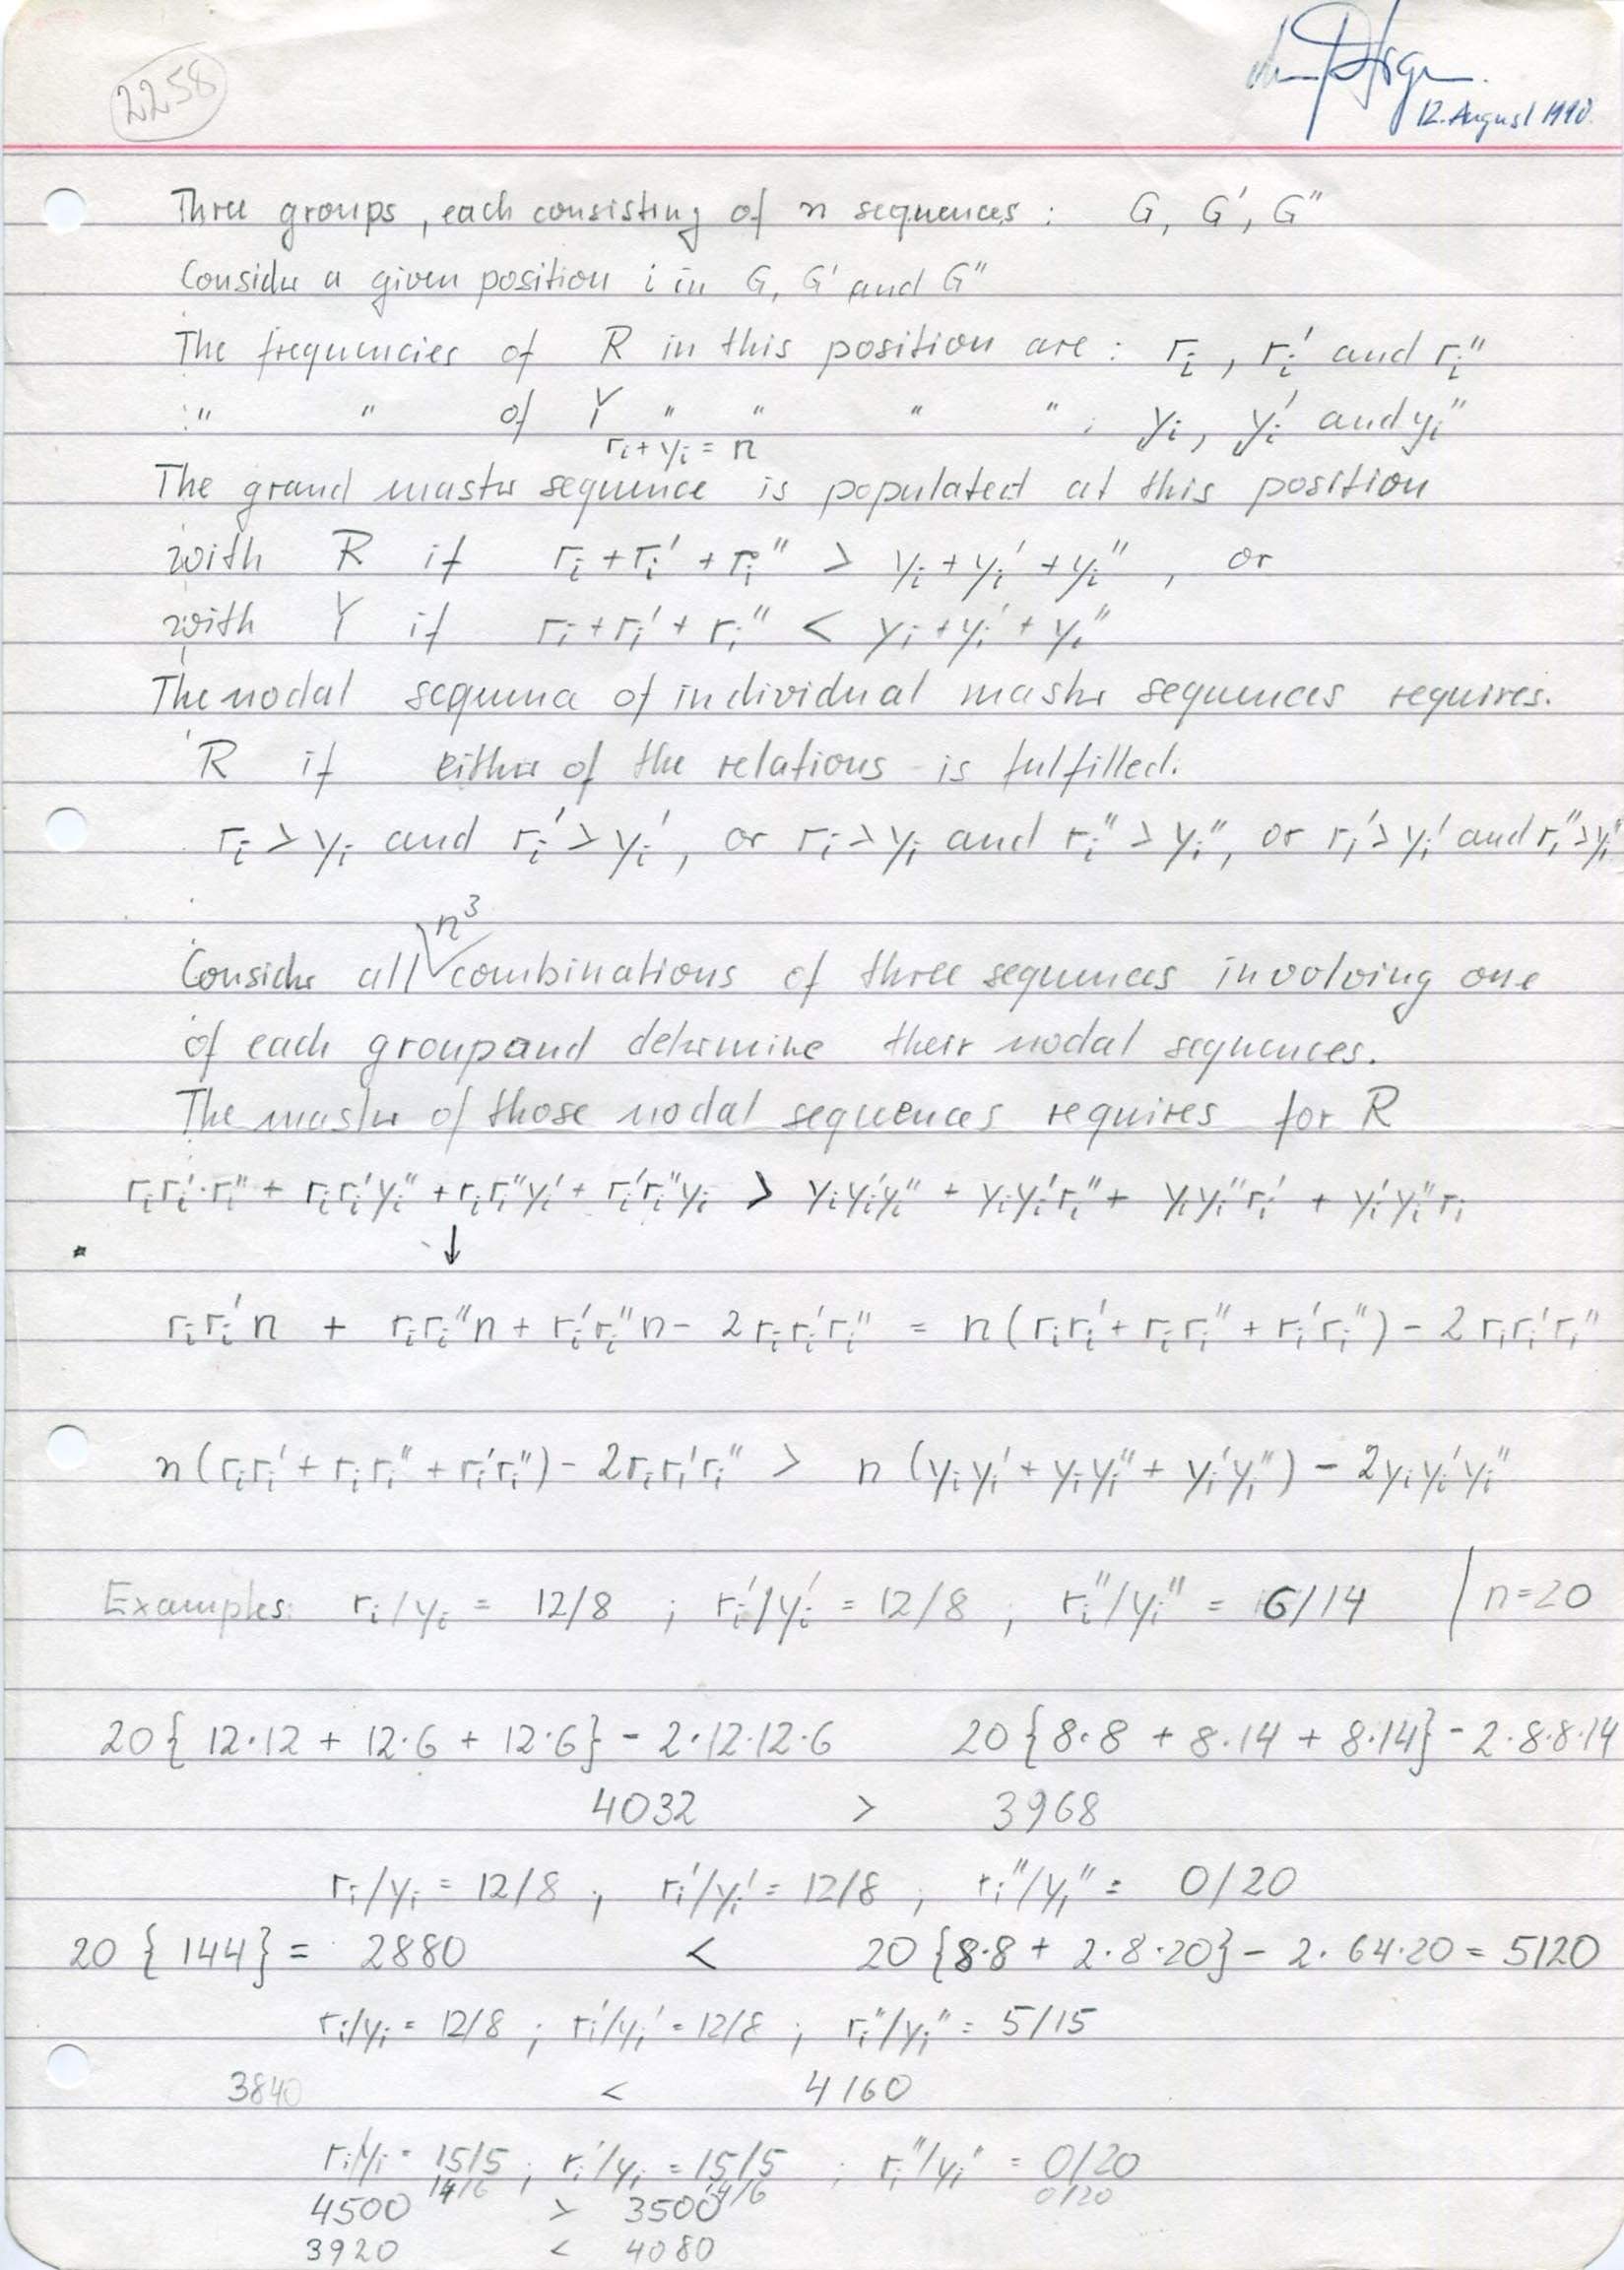 2258
12. August 1990.
Three groups, each consisting of n sequences : G, G', G"
Consider a given position i in G, G' and G"
The frequencies of R in this position are : rᵢ, rᵢ' and rᵢ"
" " of Y " " " " : yᵢ, yᵢ' and yᵢ"
rᵢ + yᵢ = n
The grand master sequence is populated at this position
with R if rᵢ + rᵢ' + rᵢ" > yᵢ + yᵢ' + yᵢ" , or
with Y if rᵢ + rᵢ' + rᵢ" < yᵢ + yᵢ' + yᵢ"
The nodal sequence of individual master sequences requires.
R if either of the relations is fulfilled.
rᵢ > yᵢ and rᵢ' > yᵢ', or rᵢ > yᵢ and rᵢ" > yᵢ", or rᵢ' > yᵢ' and rᵢ" > yᵢ"
n³
Consider all combinations of three sequences involving one
of each group and determine their nodal sequences.
The master of those nodal sequences requires for R
rᵢrᵢ'·rᵢ" + rᵢrᵢ'yᵢ" + rᵢrᵢ"yᵢ' + rᵢ'rᵢ"yᵢ > yᵢyᵢ'yᵢ" + yᵢyᵢ'rᵢ" + yᵢyᵢ"rᵢ' + yᵢ'yᵢ"rᵢ
↓
rᵢrᵢ'n + rᵢrᵢ"n + rᵢ'rᵢ"n - 2rᵢrᵢ'rᵢ" = n(rᵢrᵢ' + rᵢrᵢ" + rᵢ'rᵢ") - 2rᵢrᵢ'rᵢ"
n(rᵢrᵢ' + rᵢrᵢ" + rᵢ'rᵢ") - 2rᵢrᵢ'rᵢ" > n(yᵢyᵢ' + yᵢyᵢ" + yᵢ'yᵢ") - 2yᵢyᵢ'yᵢ"
Examples: rᵢ/yᵢ = 12/8 ; rᵢ'/yᵢ' = 12/8 ; rᵢ"/yᵢ" = 6/14 | n=20
20{12·12 + 12·6 + 12·6} - 2·12·12·6 20{8·8 + 8·14 + 8·14} - 2·8·8·14
4032 > 3968
rᵢ/yᵢ = 12/8 , rᵢ'/yᵢ' = 12/8 ; rᵢ"/yᵢ" = 0/20
20{144} = 2880 < 20{8·8 + 2·8·20} - 2·64·20 = 5120
rᵢ/yᵢ = 12/8 ; rᵢ'/yᵢ' = 12/8 ; rᵢ"/yᵢ" = 5/15
3840 < 4160
rᵢ/yᵢ = 15/5 ; rᵢ'/yᵢ = 15/5 ; rᵢ"/yᵢ" = 0/20
14/6 14/6 0/20
4500 > 3500
3920 < 4080